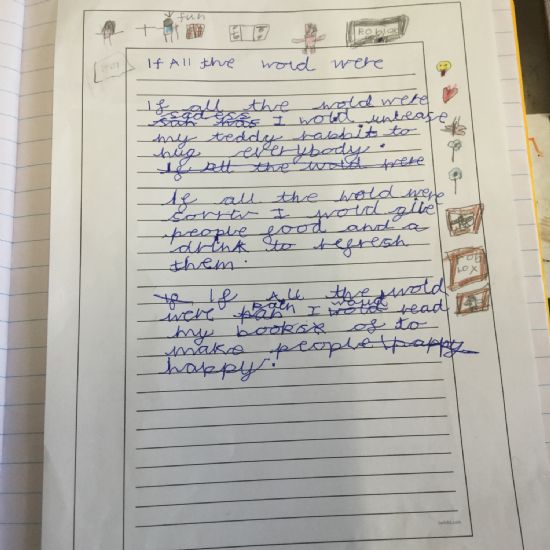 fun
ROBLOX
If All the wold were
If all the wold were
sadess
sah has I wold unlease
my teddy rabbit to
hug everybody.
If all the wold were
If all the wold were
sorrw I wold give
people food and a
drink to refresh
them.
If If All the wold
were pain I wold read
my books of to
make people happy
happy.
ROB
LOX
twinkl.com